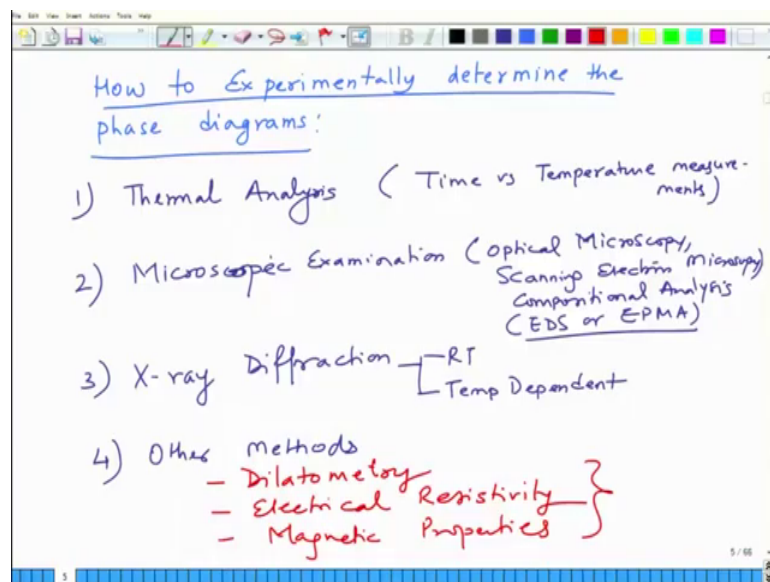 File Edit View Insert Actions Tools Help
How to Experimentally determine the
phase diagrams:
1) Thermal Analysis ( Time vs Temperature measure-
ments)
2) Microscopic Examination (Optical Microscopy,
Scanning Electron Microscopy)
Compositional Analysis
(EDS or EPMA)
3) X-ray Diffraction RT
Temp Dependent
4) Other methods
- Dilatometry
- Electrical Resistivity
- Magnetic Properties
5 / 66
5